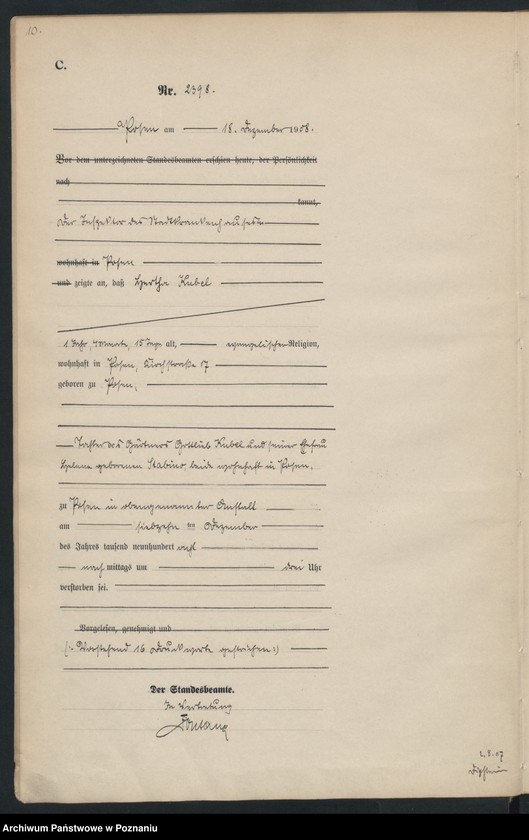 10.
C.
Nr. 2398.
Posen am 18. Dezember 1908.
Vor dem unterzeichneten Standesbeamten erschien heute, der Persönlichkeit
nach
kannt,
Der Inspektor des Stadtkrankenhauses
wohnhaft in Posen
und zeigte an, daß Hertha Kubel
1 Jahr, Monate, 15 Tage alt, evangelischer Religion,
wohnhaft in Posen, 17
geboren zu Posen,
Tochter des Gärtners Gottlieb Kubel und seiner Ehefrau
Helene geborenen Stabino, beide wohnhaft in Posen,
zu Posen in obengenannter Anstalt
am siebzehnten Dezember
des Jahres tausend neunhundert acht
nachmittags um drei Uhr
verstorben sei.
Vorgelesen, genehmigt und
(: Vorstehend 16 Druckworte gestrichen :)
Der Standesbeamte.
In Vertretung
Archiwum Państwowe w Poznaniu